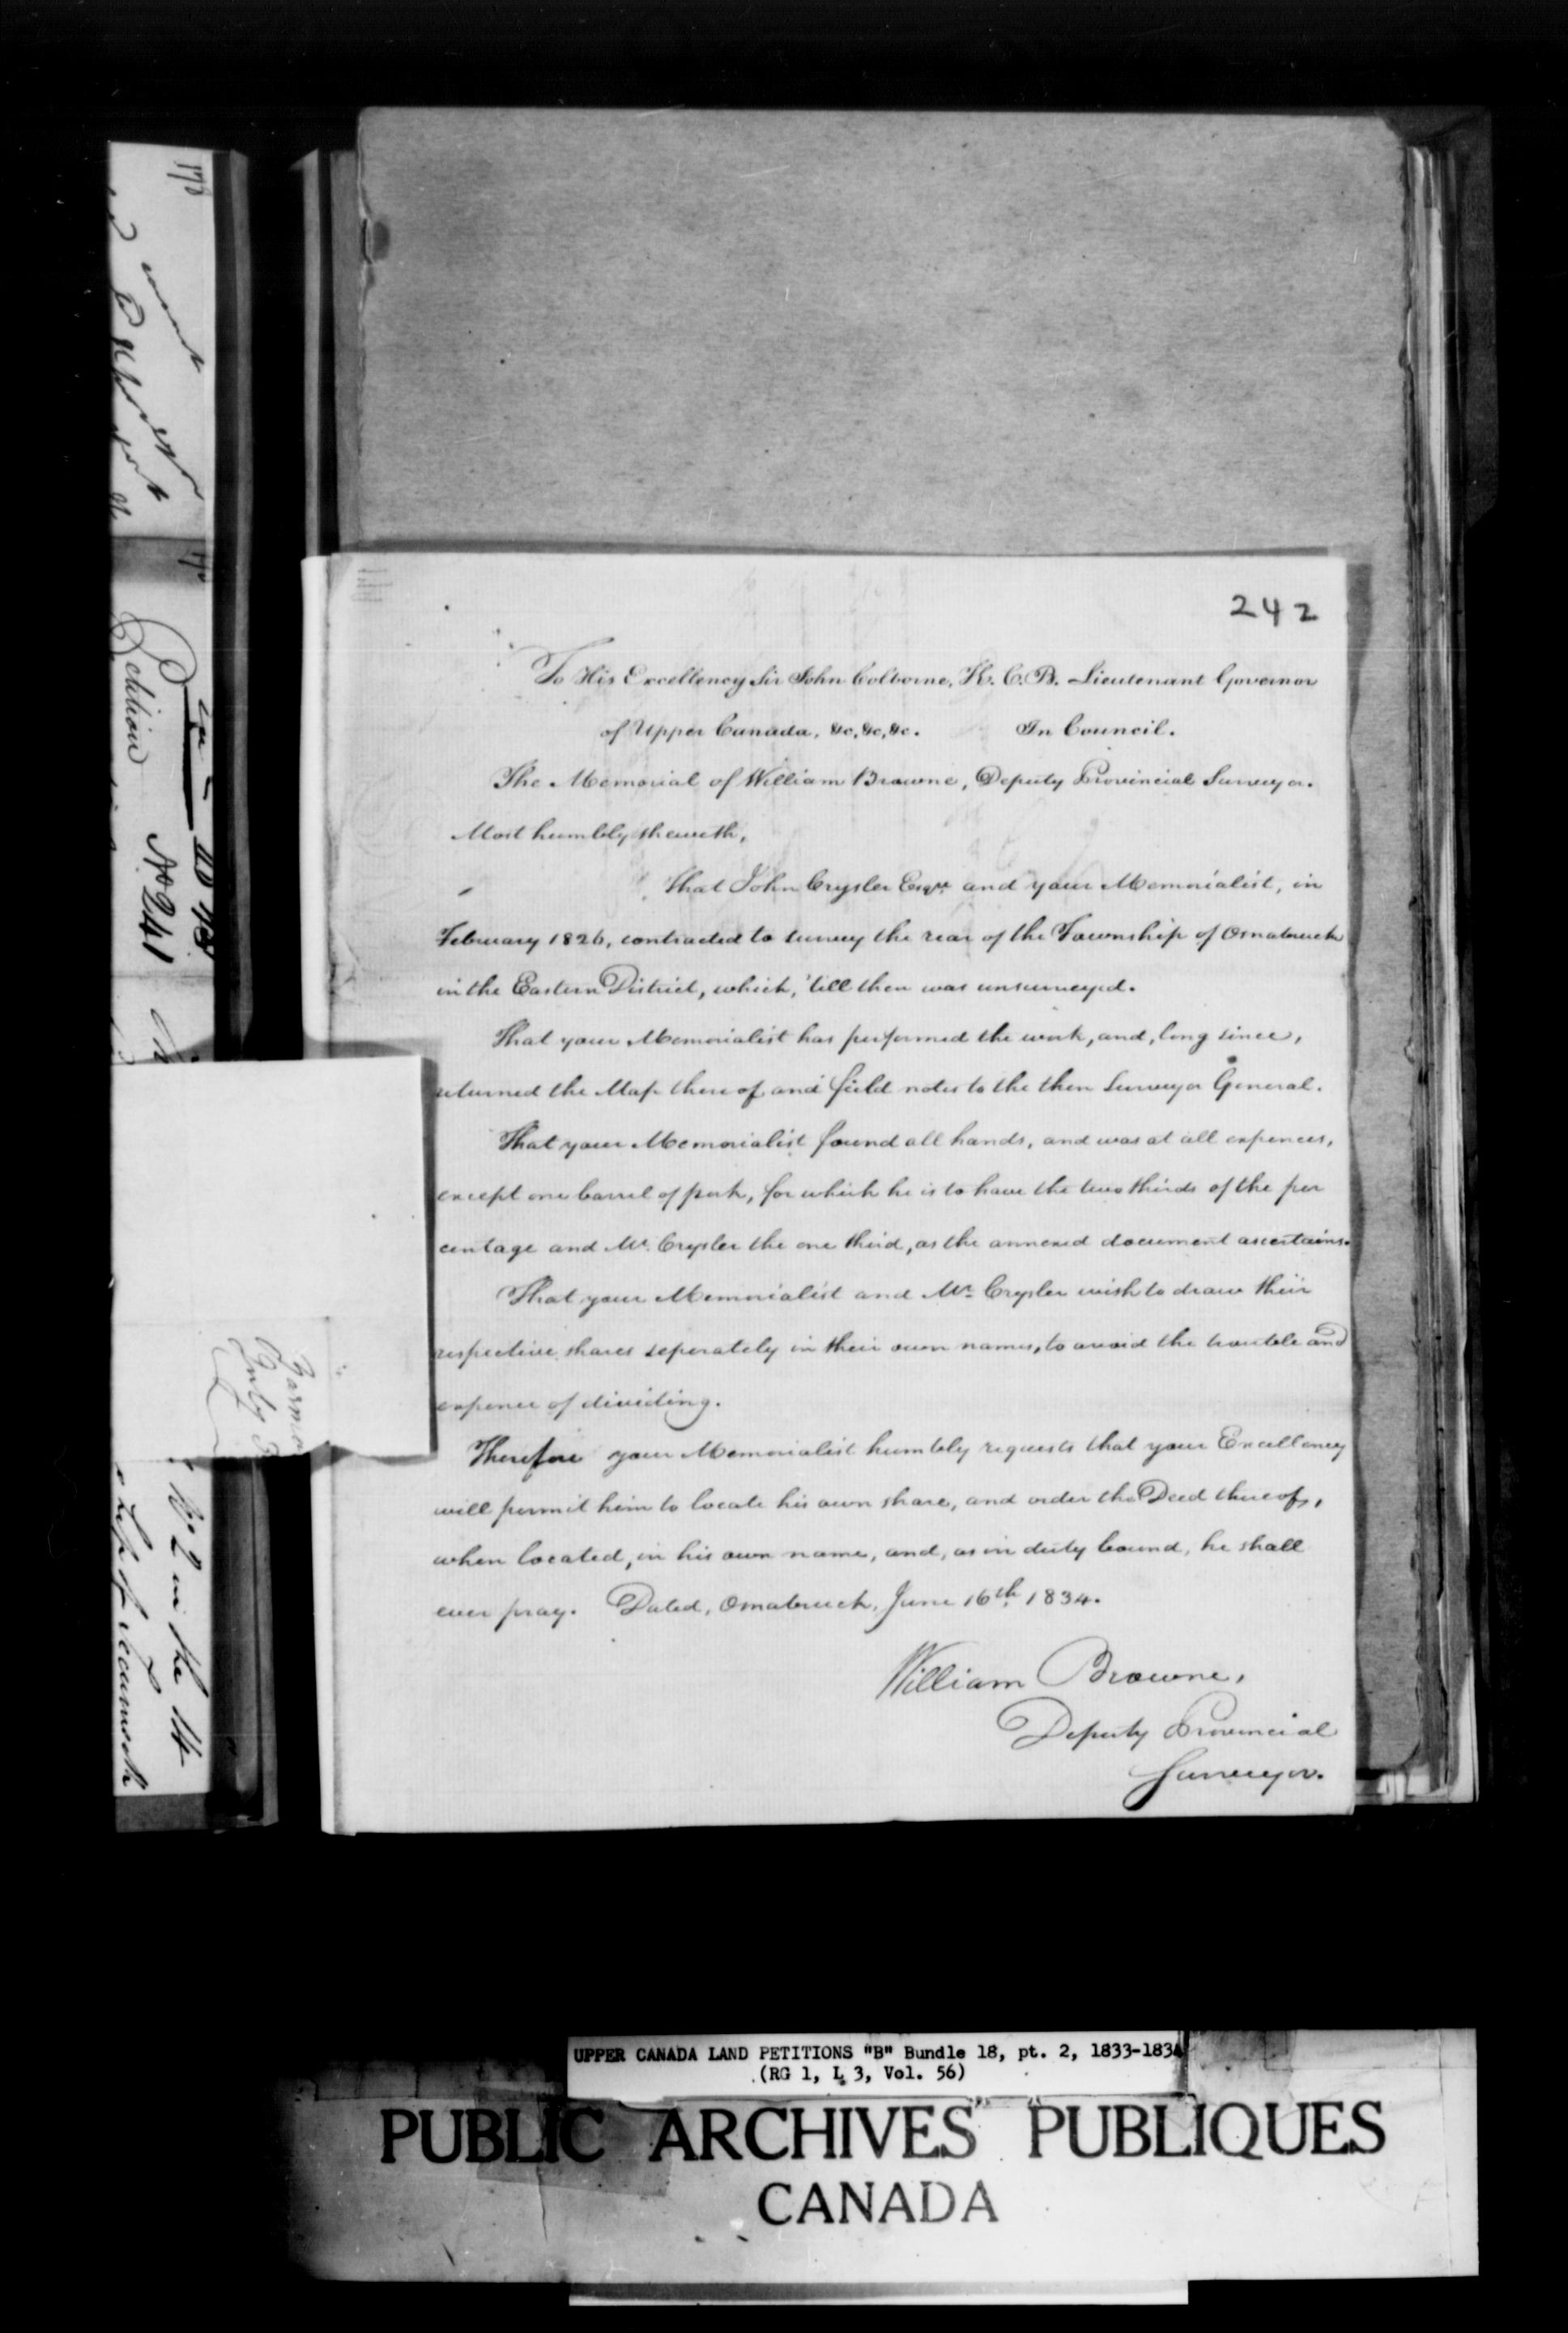 242
To His Excellency Sir John Colborne, K. C. B. Lieutenant Governor
of Upper Canada, &c, &c, &c. In Council.
The Memorial of William Browne, Deputy Provincial Surveyor.
Most humbly sheweth,
That John Crysler Esqre and your Memorialist, in
February 1826, contracted to survey the rear of the Township of Osnabruck
in the Eastern District, which, 'till then was unsurveyed.
That your Memorialist has performed the work, and, long since,
returned the Map thereof and field notes to the then Surveyor General.
That your Memorialist found all hands, and was at all expences,
except one barrel of pork, for which he is to have the two thirds of the per
centage and Mr. Crysler the one third, as the annexed document ascertains.
That your Memorialist and Mr. Crysler wish to draw their
respective shares seperately in their own names, to avoid the trouble and
expence of dividing.
Therefore your Memorialist humbly requests that your Excellency
will permit him to locate his own share, and order the Deed thereof,
when located, in his own name, and, as in duty bound, he shall
ever pray. Dated, Osnabruck, June 16th. 1834.
William Browne,
Deputy Provincial
Surveyor.
Petition
No 241
No 2 in the 14
UPPER CANADA LAND PETITIONS "B" Bundle 18, pt. 2, 1833-1834
(RG 1, L 3, Vol. 56)
PUBLIC ARCHIVES PUBLIQUES
CANADA